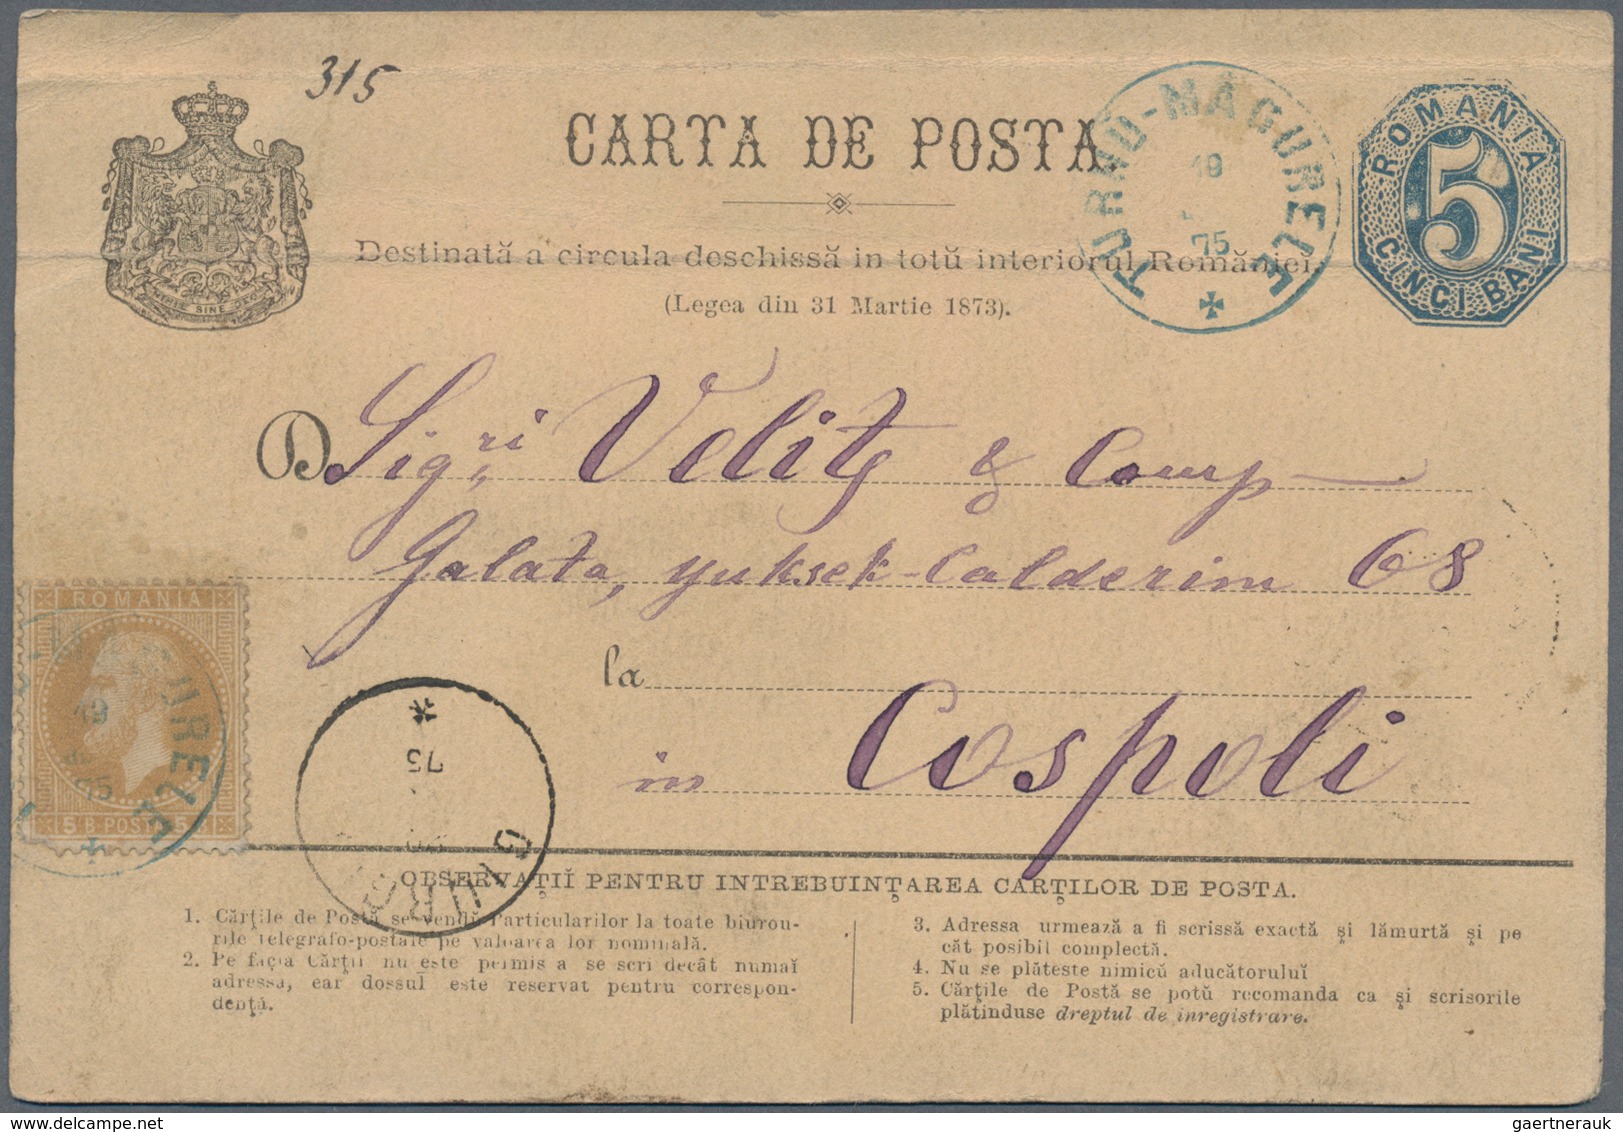 315
CARTA DE POSTA
TURNU-MAGURELE
19
75
ROMANIA
5
CINCI BANI
NIHIL SINE DEO
Destinată a circula deschissă in totŭ interiorul Romăniei.
(Legea din 31 Martie 1873).
D Sig.ri Velitz & Comp
Galata, yuksek-Calderim 68
la
in Cospoli
ROMANIA
5 B POSTA 5 B
19
75
75
GIURG
OBSERVAȚIĬ PENTRU INTREBUINȚAREA CARȚILOR DE POSTA.
1. Cărțile de Postă se vendă Particularilor la toate biurou-
rile Telegrafo-postale pe valoarea lor nominală.
2. Pe facia Cărțiĭ nu este permis a se scri decât numaĭ
adressa, ear dossul este reservat pentru correspon-
dență.
3. Adressa urmează a fi scrissă exactă și lămurtă și pe
căt posibil complectă.
4. Nu se plăteste nimicŭ aducătoruluĭ
5. Cărțile de Postă se potŭ recomanda ca și scrisorile
plătinduse dreptul de inregistrare.
gaertnerauk